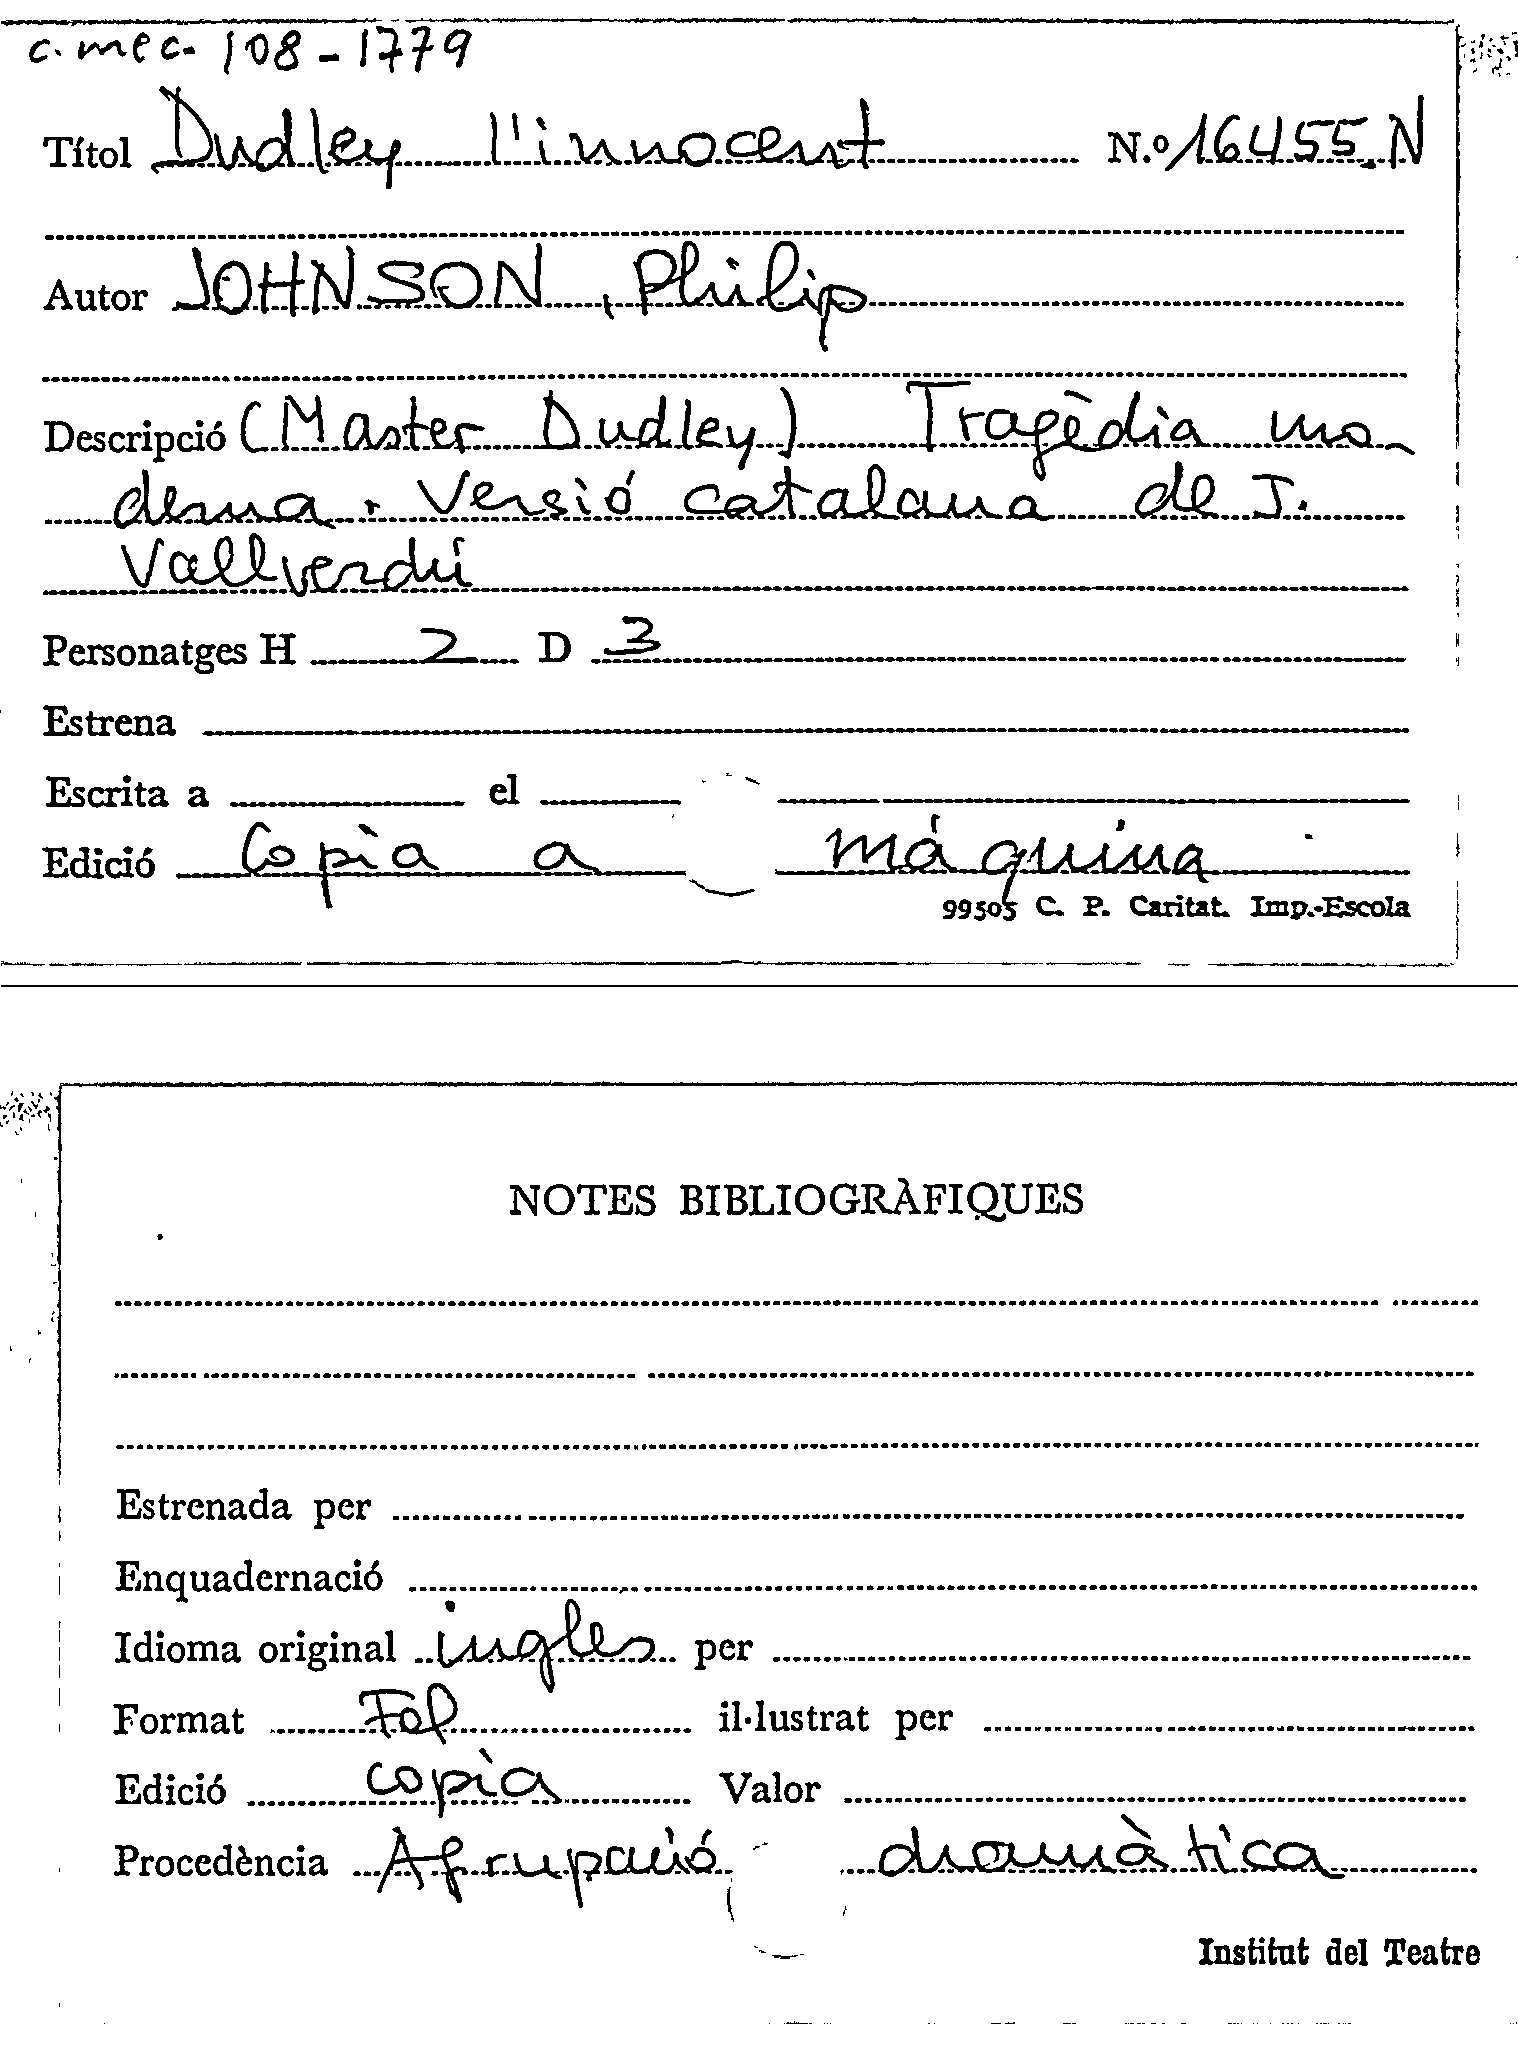 c. mec. 108-1779
Títol Dudley l'innocent N.º 16455.N
Autor JOHNSON, Philip
Descripció (Master Dudley) Tragèdia mo-
derna. Versió catalana de J.
Vallverdú
Personatges H 2 D 3
Estrena
Escrita a el
Edició Copìa a máquina
99505 C. P. Caritat. Imp.-Escola
NOTES BIBLIOGRÀFIQUES
Estrenada per
Enquadernació
Idioma original ingles per
Format Fol il·lustrat per
Edició copìa Valor
Procedència Agrupació dramàtica
Institut del Teatre